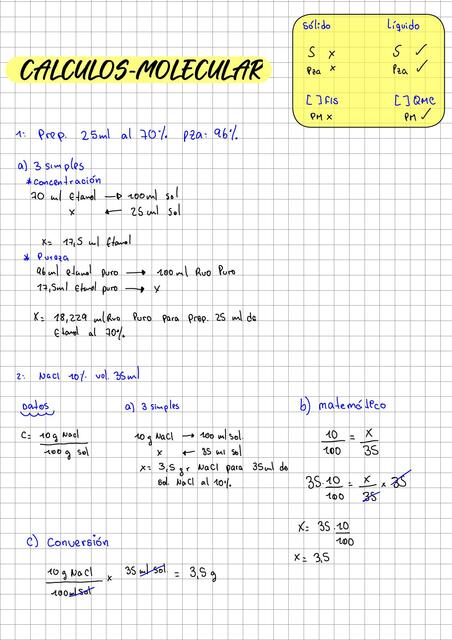 CALCULOS-MOLECULAR
Sólido Líquido
S x S ✓
Pza x Pza ✓
[ ] FIS [ ] QMC
PM x PM ✓
1: Prep. 25ml al 70% Pza: 96%
a) 3 simples
* concentración
70 ml Etanol → 100ml Sol
x ← 25 ml Sol
x= 17,5 ml Etanol
* Pureza
96ml etanol puro → 100ml Rvo Puro
17,5ml Etanol puro → x
X= 18,229 ml Rvo Puro para Prep. 25 ml de
Etanol al 70%
2: NaCl 10% vol. 35ml
Datos
C= 10g NaCl / 100g sol
a) 3 simples
10g NaCl → 100 ml sol.
x ← 35 ml sol
x= 3,5 gr NaCl para 35ml de
sol. NaCl al 10%
b) matemático
10/100 = x/35
35 · 10/100 = x/35 x 35
x= 35 · 10/100
x= 3,5
c) Conversión
10g NaCl / 100ml sol x 35ml sol = 3,5g